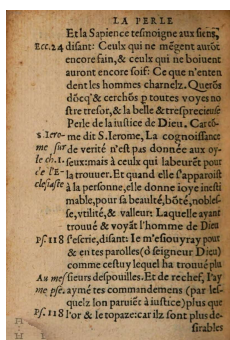 LA PERLE
Et la Sapience tesmoigne aux siens,
Ecc.24 disant: Ceulx qui ne mẽgent aurõt
encore fain, & ceulx qui ne boiuent
auront encore soif: Ce que n'enten
dent les hommes charnelz. Querõs
dõcq' & cerchõs p toutes voyes no
stre tresor, & la belle & tresprecieuse
Perle de la iustice de Dieu. Car cõ-
S. Iero- me dit S. Ierome, La cognoissance
me sur de verité n'est pas donnée aux oy-
le ch.1. seux: mais à ceulx qui labeurẽt pour
de l'E- la trouuer. Et quand elle s'apparoist
clesiaste à la personne, elle donne ioye inesti
mable, pour sa beaulté, bõté, nobles-
se, vtilité, & valleur: Laquelle ayant
trouué & voyãt l'homme de Dieu
Ps.118 s'escrie, disant: Ie m'esiouyray pour
& en tes paroles (ô seigneur Dieu)
comme cestuy lequel ha trouué plu
Au mes sieurs despouilles. Et de rechef, I'ay
me pse. aymé tes commandemens (par les-
quelz lon paruiẽt à iustice) plus que
Ps.118 l'or & le topaze: car ilz sont plus de-
sirables